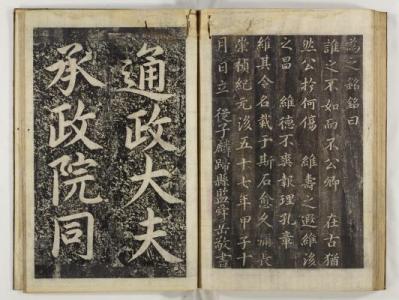 為之銘銘曰
誰之不如而不公卿 在古猶
然公扵何傷 維壽之遐維後
之昌 維德不爽報理孔章
維其令名載于斯石愈久彌長
崇禎紀元後五十七年甲子十
月日立 從子麟蹄縣監舜岳敬書
通政大夫
承政院同